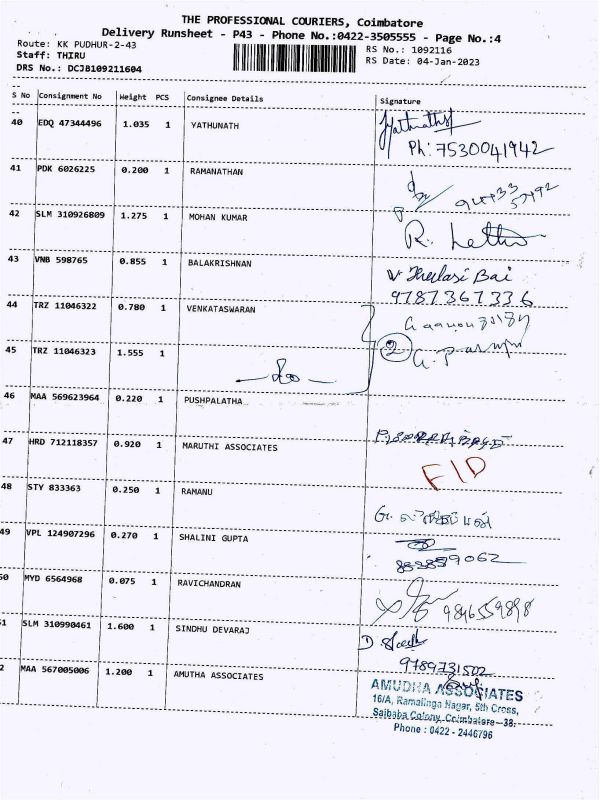 THE PROFESSIONAL COURIERS, Coimbatore
Delivery Runsheet - P43 - Phone No.:0422-3505555 - Page No.:4
Route: KK PUDHUR-2-43
RS No.: 1092116
Staff: THIRU
RS Date: 04-Jan-2023
DRS No.: DCJB109211604
S No Consignment No Weight PCS Consignee Details Signature
40 EDQ 47344496 1.035 1 YATHUNATH
Ph: 7530041942
41 PDK 6026225 0.200 1 RAMANATHAN
42 SLM 310926809 1.275 1 MOHAN KUMAR
43 VNB 598765 0.855 1 BALAKRISHNAN
V Thulasi Bai
9787367336
44 TRZ 11046322 0.780 1 VENKATASWARAN
45 TRZ 11046323 1.555 1
2
46 MAA 569623964 0.220 1 PUSHPALATHA
47 HRD 712118357 0.920 1 MARUTHI ASSOCIATES
F/D
48 STY 833363 0.250 1 RAMANU
49 VPL 124907296 0.270 1 SHALINI GUPTA
50 MYD 6564968 0.075 1 RAVICHANDRAN
51 SLM 310990461 1.600 1 SINDHU DEVARAJ
9789731502
2 MAA 567005006 1.200 1 AMUTHA ASSOCIATES
AMUDHA ASSOCIATES
16/A, Ramalinga Nagar, 5th Cross,
Saibaba Colony, Coimbatore - 38.
Phone : 0422 - 2446796